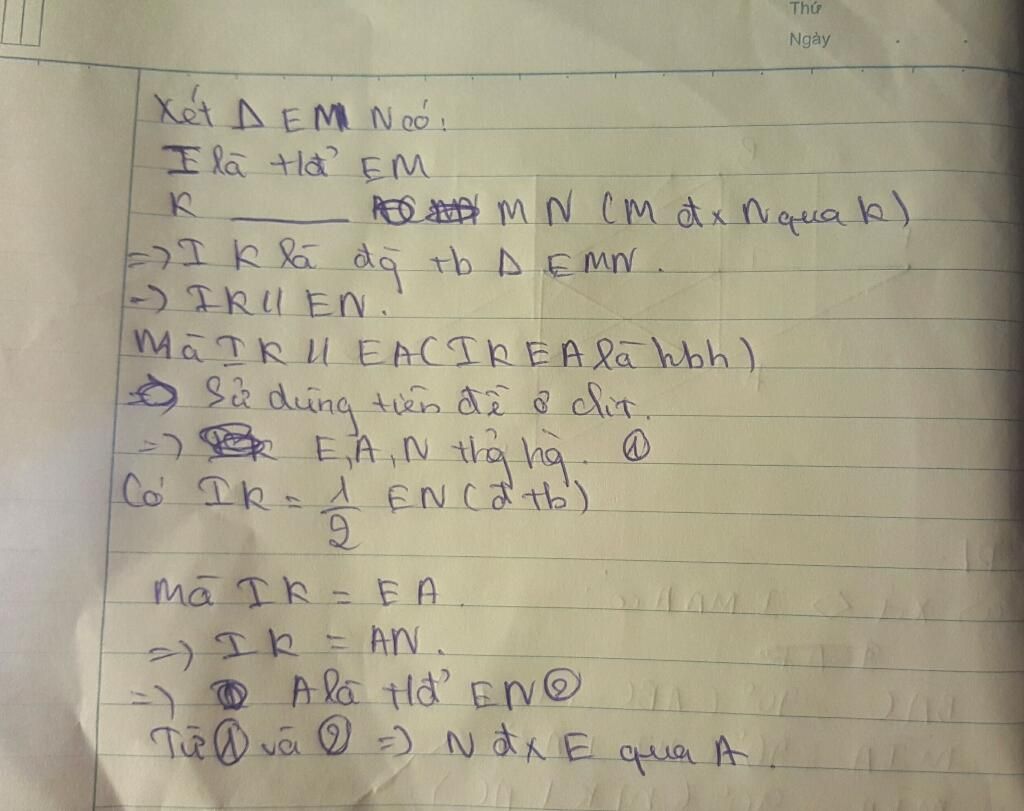 Thứ
Ngày
Xét Δ EMN có:
I là tđ' EM
K ——— MN (M đx N qua K)
=> IK là đg tb Δ EMN.
=> IK // EN.
Mà IK // EA (IKEA là hbh)
=> Sử dụng tiên đề ơ clit.
=> E, A, N thg hg. ①
Có IK = 1/2 EN (đtb)
Mà IK = EA.
=> IK = AN.
=> A là tđ' EN ②
Từ ① và ② => N đx E qua A.